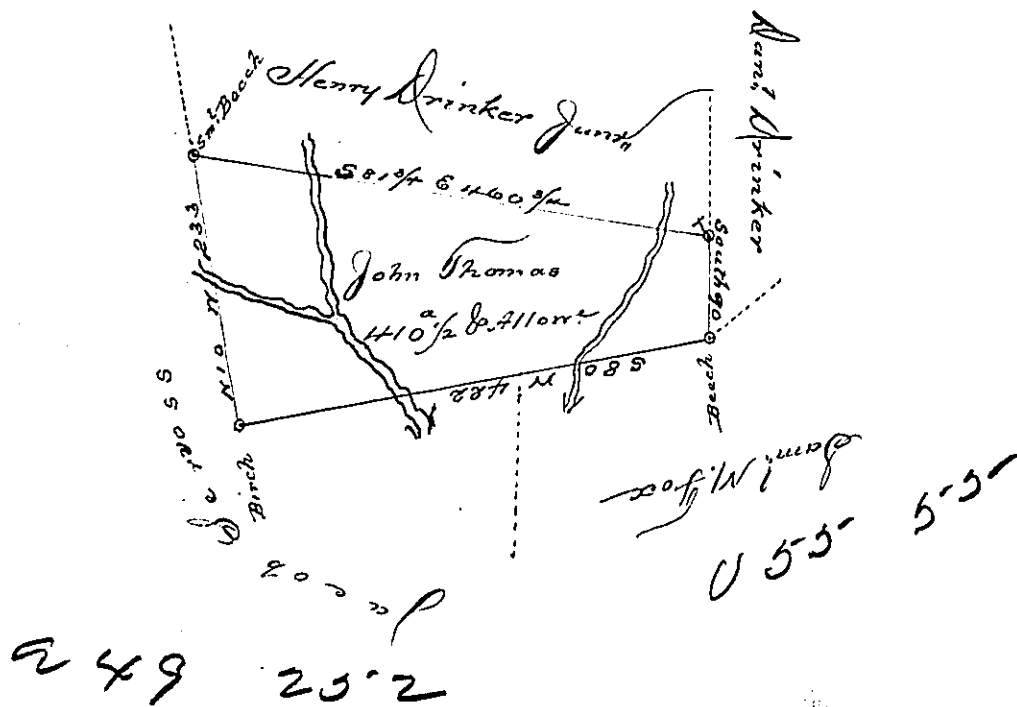 Henry Drinker Junr
Danl Drinker
Sml Beech
S 81 3/4 E 460 3/4
N 10 W 233
South 90
John Thomas
410 a 1/2 & Allowe
S 80 W 422
Beech
Birch
Jacob
Saml M. Fox
U 55 55
249 252